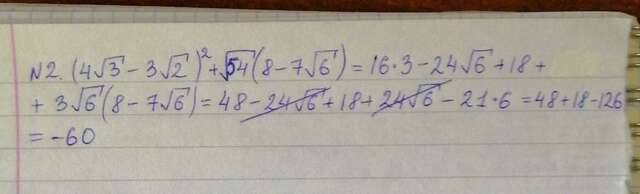 N2. (4√3 - 3√2)² + √54(8 - 7√6) = 16·3 - 24√6 + 18 +
+ 3√6(8 - 7√6) = 48 - 24√6 + 18 + 24√6 - 21·6 = 48 + 18 - 126
= -60